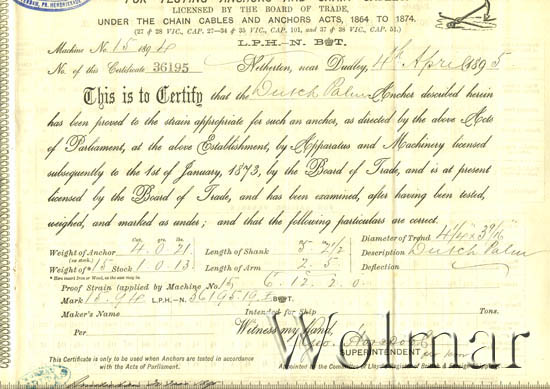 FOR TESTING ANCHORS AND
LICENSED BY THE BOARD OF TRADE,
UNDER THE CHAIN CABLES AND ANCHORS ACTS, 1864 TO 1874.
(27 & 28 VIC., CAP. 27—34 & 35 VIC., CAP. 101, and 37 & 38 VIC., CAP. 51.)
Machine No. 15 1894 L.P.H–N. B↑T.
No. of this Certificate 36195 Netherton, near Dudley, 4th April 1895
This is to Certify that the Dutch Palm Anchor described herein
has been proved to the strain appropriate for such an anchor, as directed by the above Acts
of Parliament, at the above Establishment, by Apparatus and Machinery licensed
subsequently to the 1st of January, 1873, by the Board of Trade, and is at present
licensed by the Board of Trade, and has been examined, after having been tested,
weighed, and marked as under; and that the following particulars are correct.
Cwt. qrs. lbs.
Diameter of Trend
Weight of Anchor 4 . 0 . 21 Length of Shank
(ex stock.)
Description Dutch Palm
Weight of * 15 Stock 1 . 0 . 13 Length of Arm 2 . 5 Deflection
* Here insert Iron or Wood, as the case may be.
Proof Strain (applied by Machine No. 15 6 . 12 . 2 . 0
Mark 15.94 L.P.H.–N. 36195 B↑T.
Maker's Name Intended for Ship Tons.
Per Witness my hand,
SUPERINTENDENT
This Certificate is only to be used when Anchors are tested in accordance
with the Acts of Parliament.
Appointed by the Committee of Lloyd's
Wolmar